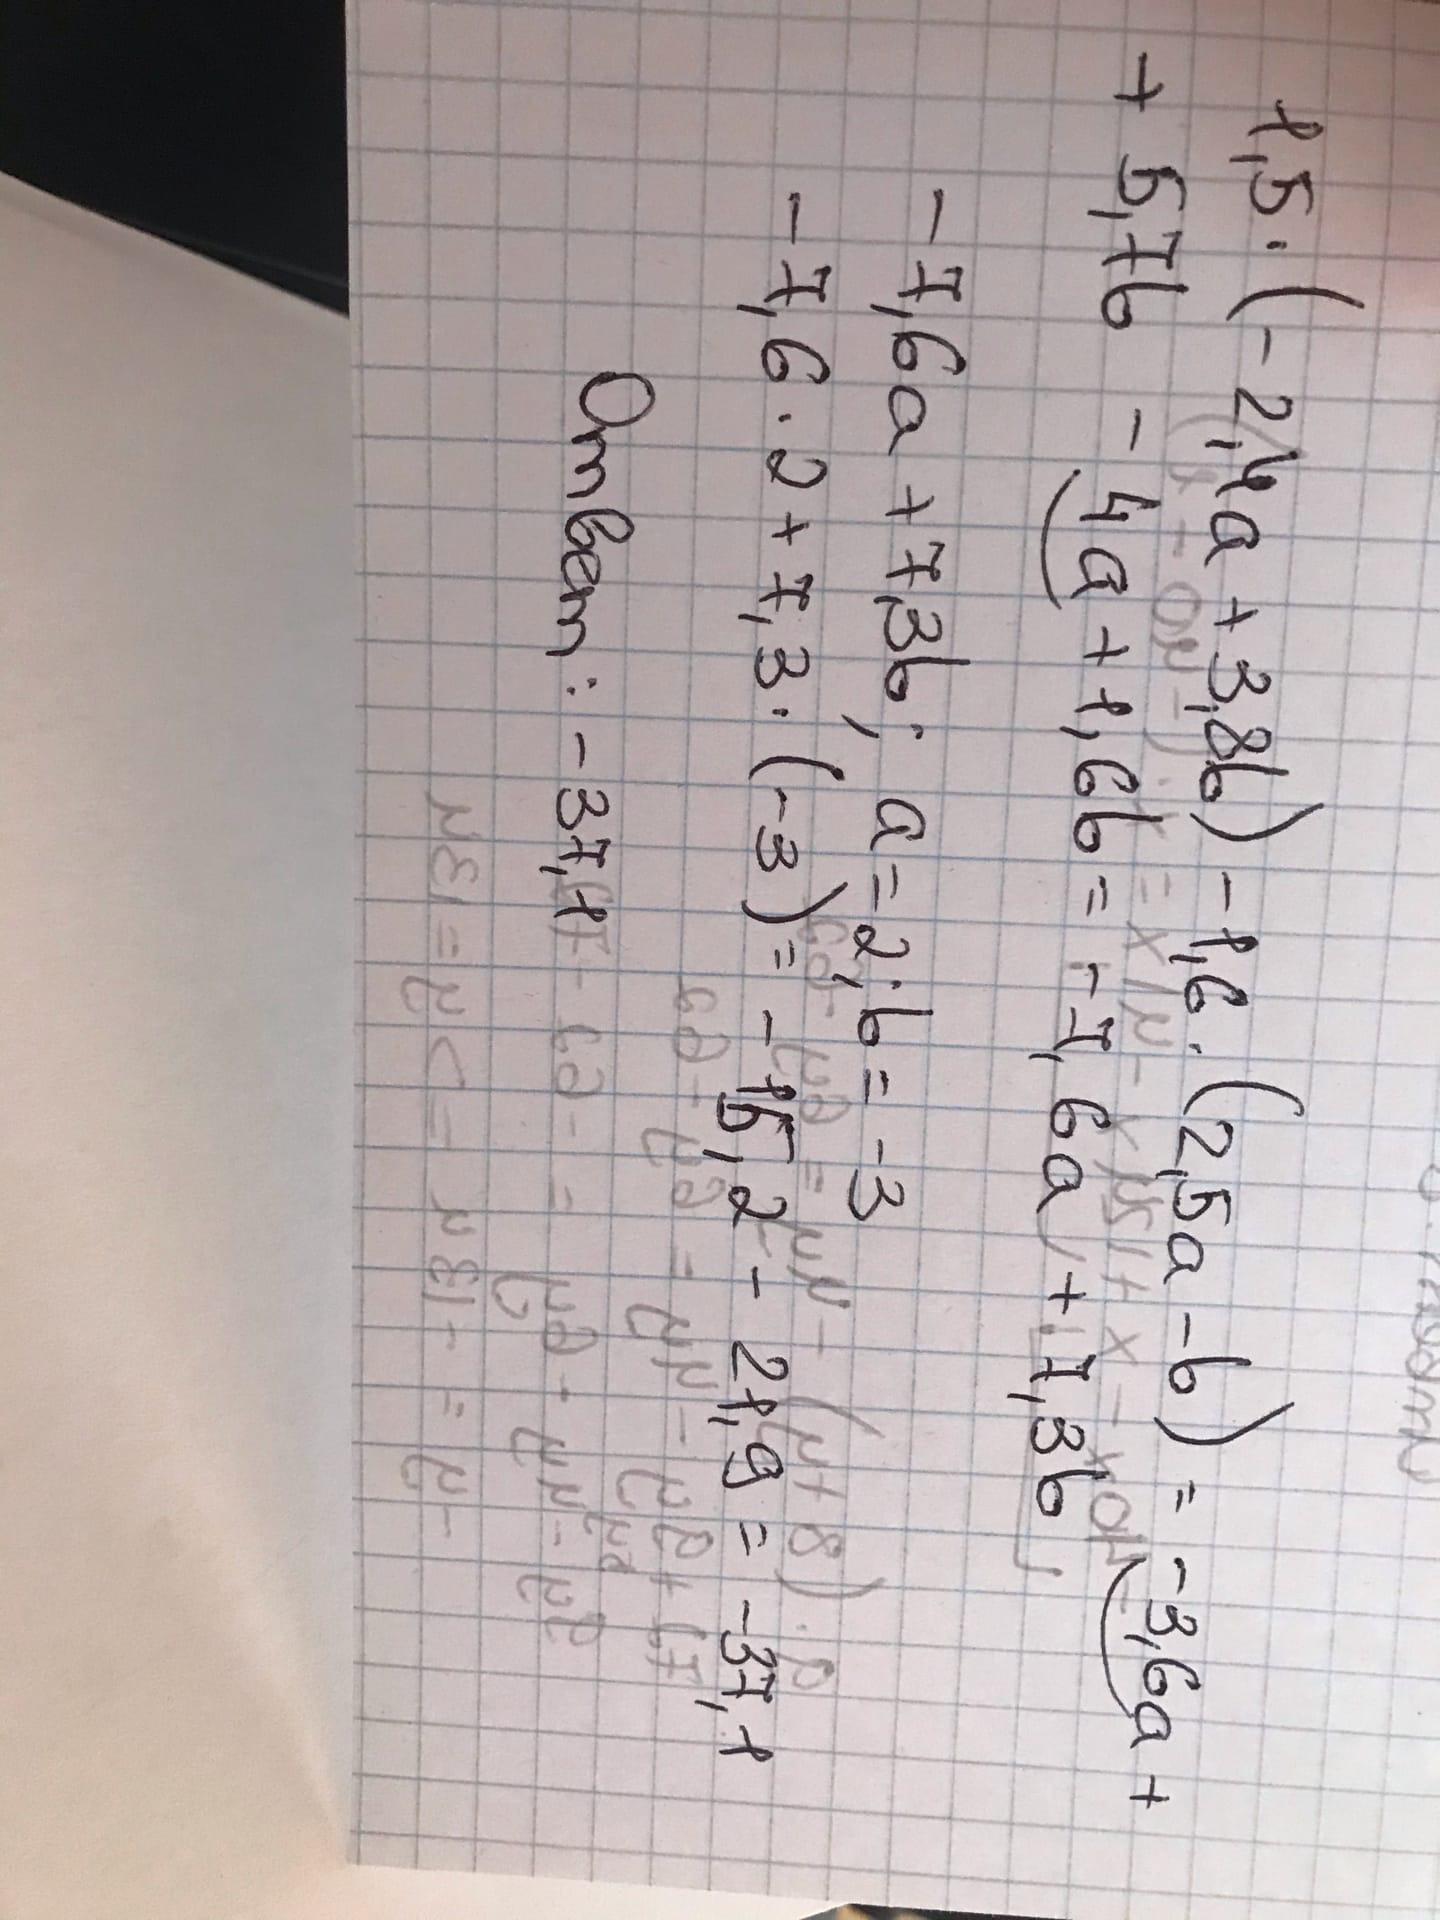 1,5·(-2,4a+3,8b)-1,6·(2,5a-b)=-3,6a+
+5,7b-4a+1,6b=-7,6a+7,3b
-7,6a+7,3b; a=2; b=-3
-7,6·2+7,3·(-3)=-15,2-21,9=-37,1
Ответ: -37,1